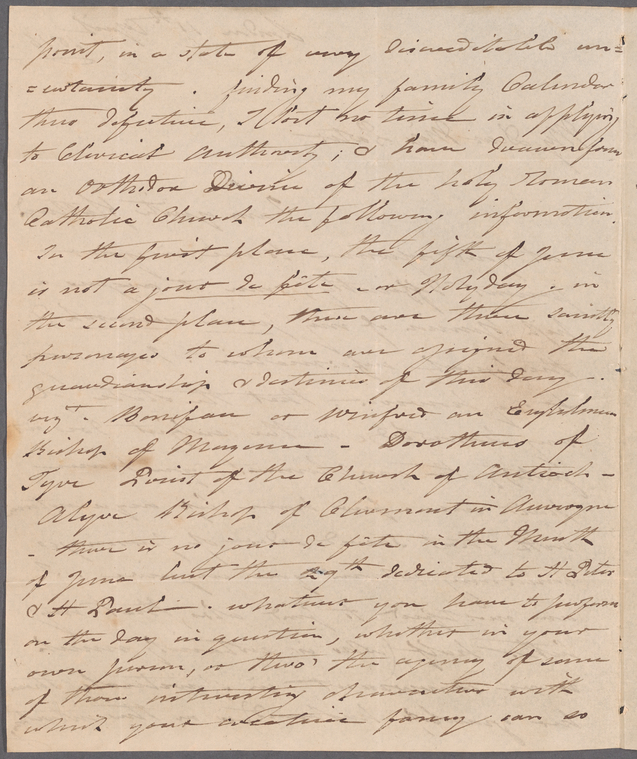 point, in a state of very discreditable un=
=certainty. finding my family Calendar
thus defective, I lost no time in applying
to Clerical Authority; & have drawn from
an Orthodox Divine of the holy Roman
Catholic Church the following information.
In the first place, the fifth of June
is not a jour de fête - or Holyday. in
the second place, there are three saintly
personages to whom are assigned the
guardianship & destinies of this day.
vizt. Boniface or Winfred an Englishman
Bishop of Mayence - Dorotheus of
Tyre Priest of the Church of Antioch -
Alyre Bishop of Clermont in Auvergne
- there is no jour de fête in the Month
of June but the 29th dedicated to St Peter
& St Paul. whatever you have to perform
on the day in question, whether in your
own person, or thro' the agency of some
of those interesting characters with
which your creative fancy can so